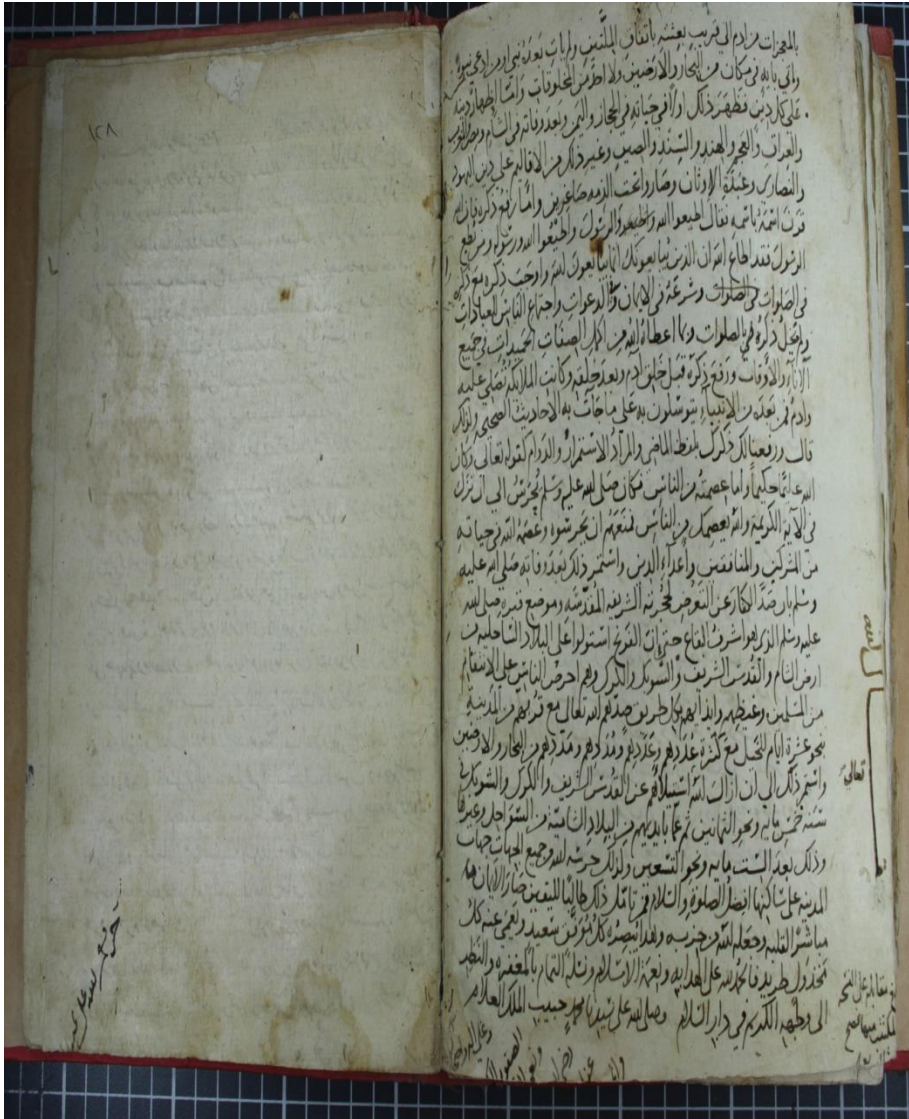 بالمعجزات من ادم الى قريب بعثته باتفاق الملتين ولم يات بعده نبي
في مكان من البحار والارضين ولا احد من المخلوقات واما اظهار دينه
على كل دين فظهر ذلك اولا في حياته في الحجاز واليمن وبعد وفاته في الشام ومصر
والعراق والعجم والهند والسند والصين وغير ذلك من الاقاليم على دين اليهود
والنصارى وعبدة الاوثان وصاروا تحت الذمه صاغرين واما رفع ذكره فان الله
قرن اسمه باسمه فقال اطيعوا الله واطيعوا الرسول واطيعوا الله ورسوله ومن يطع
الرسول فقد اطاع الله ان الذين يبايعونك انما يبايعون الله واوجب ذكره مع ذكره
في الصلوات وشرعه في الاذان والدعوات واجتماع الناس للعبادات
ذكره في الصلوات وبما اعطاه الله من اكمل الصفات الحميدات في جميع
الاناء والاوقات ورفع ذكره قبل خلق ادم وبعد خلقه وكانت الملائكة تصلي عليه
وادم فمن بعده من الانبياء يتوسلون به على ما جأت به الاحاديث الصحيحه ولذلك
قال ورفعنا لك ذكرك بلفظ الماضي والمراد الاستمرار والدوام كقوله تعالى وكان
الله عليما حكيما واما عصمته من الناس فكان صلى الله عليه وسلم يحرس الى ان نزل
في الآية الكريمة والله يعصمك من الناس فمنعهم ان يحرسوه وعصمه الله في حياته
من المشركين والمنافقين واعداء الدين واستمر ذلك بعد وفاته صلى الله عليه
وسلم بان صد الكفار عن التعرض لحجرته الشريفه المقدسه وموضع قبره صلى الله
عليه وسلم الذي هو اشرف البقاع حتى ان الفرنج استولوا على البلاد الساحليه من
ارض الشام والقدس الشريف والشوبك والكرك وهم احرص الناس على الانتقام
من المسلمين وغيظهم واذايهم بكل طريق صدهم الله تعالى مع قربهم من المدينة
نحو عشرة ايام للخيل مع كثرة عددهم وعددهم ومددهم من البحار والارضين
واستمر ذلك الى ان ازال الله استيلاهم عن القدس الشريف والكرك والشوبك في
سنة خمس مايه ونحو الثمانين ثم عما بايديهم من البلاد الشاميه من السواحل وغيرها
وذلك بعد الست مايه ونحو التسعين ولذلك حرسه الله وجميع الجهات جهات
المدينه على ساكنها افضل الصلوة والسلام فمن تامل ذلك طالبا لليقين صار الايمان
مباشرا لقلبه وجعله الله من حزبه وهذا يبصره كل موفق سعيد ويعمى عنه كل
مخذول طريد فالحمد لله على الهدايه ونعمة الاسلام ونسئله التمام بالمغفره والنظر
الى وجهه الكريم في دار السلام وصلى الله على سيدنا محمد حبيب الملك العلام
تعالى
١٢٨